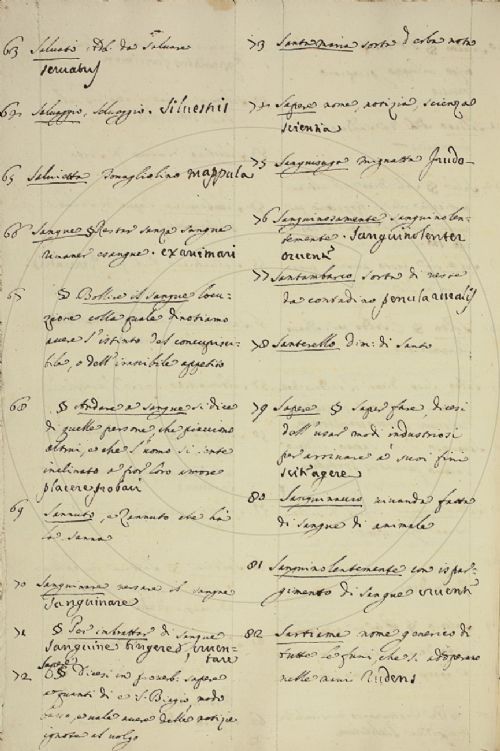 63 Salvato Ad. da Salvare
servatus
64 Salvaggio, Selvaggio. Silvestris
65 Salvietta Tovagliolino mappula
66 Sangue § Restar senza sangue
rimaner esangue. exanimari
67 § Bollire il sangue locu-
zione colla quale dinotiamo
avere l'istinto del concupisci-
bile, o dell'irascibile appetito
68 § Andare a sangue si dice
di quelle persone che piacciono
altrui, e che l'uomo si sente
inclinato a por loro amore
placere probari
69 Sannuto, e Zannuto che ha
le sanne
70 Sanguinare versare il sangue
sanguinare
71 § Per imbrattar di sangue
sanguine tingere, cruen-
tare
72 Sapere § Dicesi in proverb. sapere
a quanti dì è S. Biagio, modo
basso, e vale avere delle notizie
ignote al volgo
73 Santa maria sorta d'erba nota
74 Sapere nome, notizia, scienza
scientia
75 Sanguisuga mignatta hirudo.
76 Sanguinosamente sanguinolen-
temente. sanguinolenter
cruent.
77 Santambarco sorta di veste
da contadino penula rural.
78 Santerello dim: di Santo
79 Sapere § Saper fare, dicesi
dell'usar modi industriosi
per arrivare a suoi fini
scit agere
80 Sanguinaccio vivanda fatta
di sangue di animale
81 Sanguinolentemente con ispar-
gimento di sangue cruent.
82 Sartiame nome generico di
tutte le funi che si adoperano
nelle navi Rudens